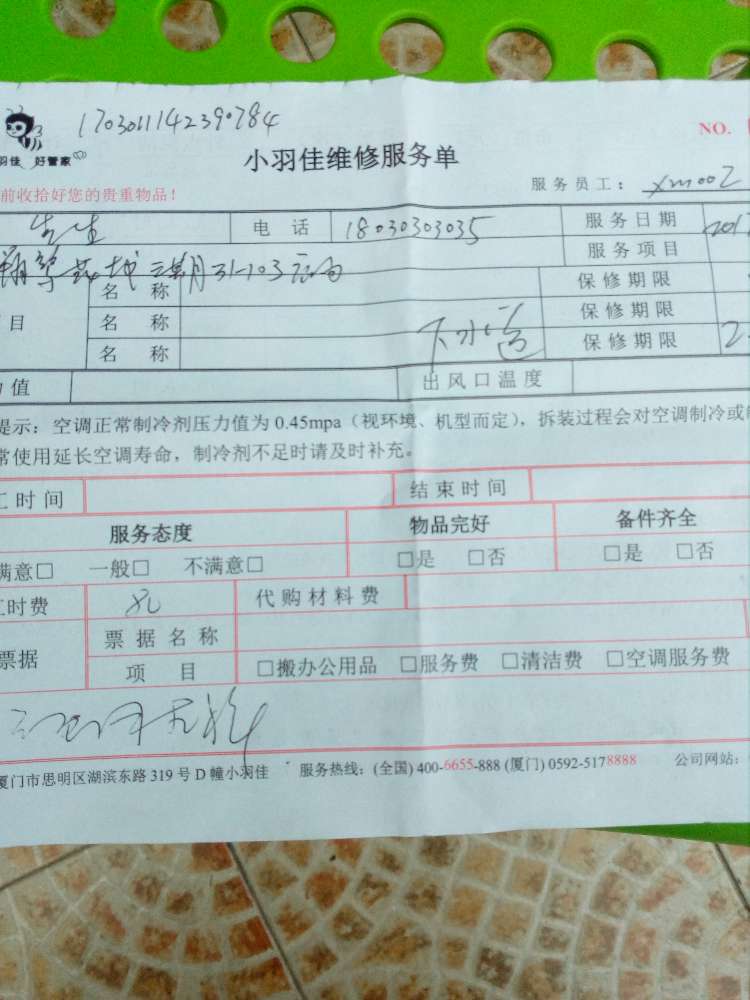 1703011142390784
羽佳 好管家
小羽佳维修服务单
NO.
前收拾好您的贵重物品！
服务员工： xm002
先生 电话 18030303035 服务日期 201
31-103 服务项目
名称 保修期限
目 名称 保修期限
名称 下水道 保修期限
值 出风口温度
提示：空调正常制冷剂压力值为 0.45mpa（视环境、机型而定），拆装过程会对空调制冷或
常使用延长空调寿命，制冷剂不足时请及时补充。
工时间 结束时间
服务态度 物品完好 备件齐全
满意□ 一般□ 不满意□ □是 □否 □是 □否
工时费 代购材料费
票据 票据名称
项目 □搬办公用品 □服务费 □清洁费 □空调服务费
厦门市思明区湖滨东路 319 号 D 幢小羽佳 服务热线：(全国) 400-6655-888 (厦门) 0592-5178888 公司网站：